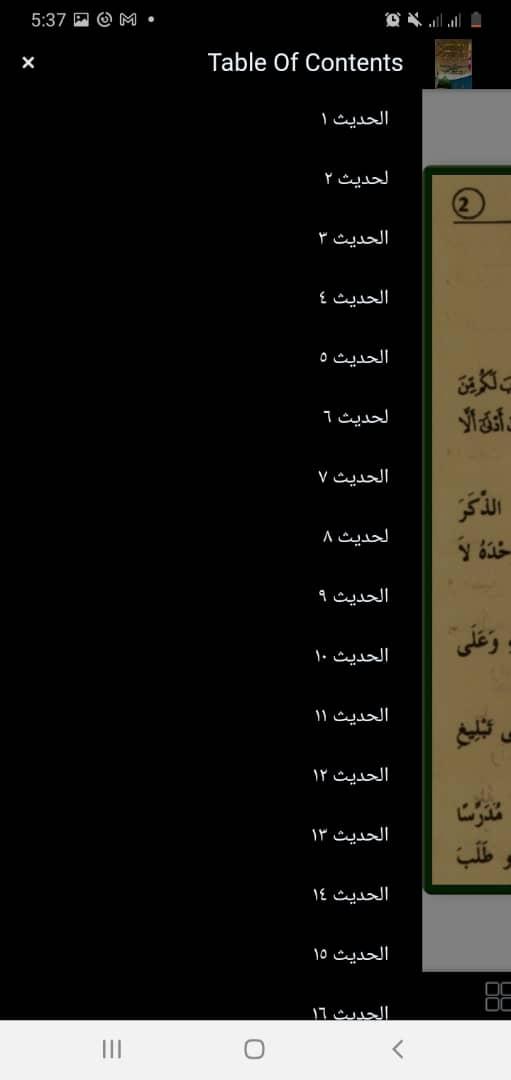 5:37
Table Of Contents
الحديث ١
لحديث ٢
الحديث ٣
الحديث ٤
الحديث ٥
لحديث ٦
الحديث ٧
لحديث ٨
الحديث ٩
الحديث ١٠
الحديث ١١
الحديث ١٢
الحديث ١٣
الحديث ١٤
الحديث ١٥
الحديث ١٦
2
لَكُم مِّنَ
أَدْنَىٰ أَلَّا
الذِّكْرَ
حْدَهُ لَا
وَعَلَى
تَبْلِيغِ
مُدَرِّسًا
و طَلَبَ